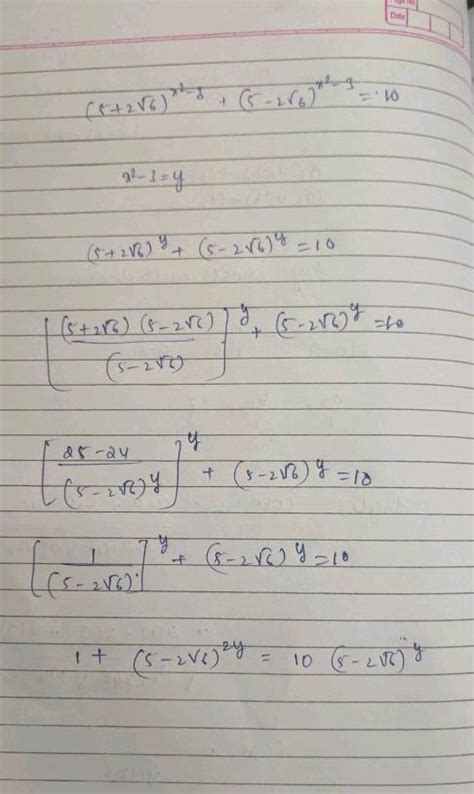 Page No
Date
(5+2√6)^(x²-3) + (5-2√6)^(x²-3) = 10
x²-3 = y
(5+2√6)^y + (5-2√6)^y = 10
[(5+2√6) (5-2√6) / (5-2√6)]^y + (5-2√6)^y = 10
[25-24 / (5-2√6)^y]^y + (5-2√6)^y = 10
[1 / (5-2√6)]^y + (5-2√6)^y = 10
1 + (5-2√6)^2y = 10 (5-2√6)^y